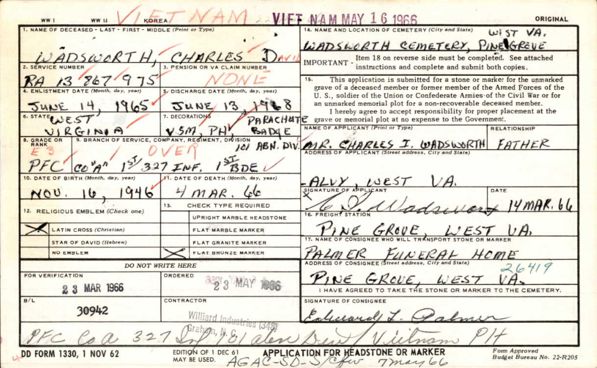 WW I WW II KOREA VIET NAM VIET NAM MAY 16 1966 ORIGINAL
1. NAME OF DECEASED - LAST - FIRST - MIDDLE (Print or Type)
WADSWORTH, CHARLES DAVID
2. SERVICE NUMBER
RA 13 867 975
3. PENSION OR VA CLAIM NUMBER
NONE
4. ENLISTMENT DATE (Month, day, year)
JUNE 14, 1965
5. DISCHARGE DATE (Month, day, year)
JUNE 13, 1968
6. STATE
WEST VIRGINIA
7. DECORATIONS
VSM, PH PARACHUTE BADGE
8. GRADE OR RANK
E3
PFC
9. BRANCH OF SERVICE, COMPANY, REGIMENT, DIVISION
OVER 101 ABN. DIV.
CO "A" 1ST 327 INF. 1ST BDE
10. DATE OF BIRTH (Month, day, year)
NOV. 16, 1946
11. DATE OF DEATH (Month, day, year)
4 MAR. 66
12. RELIGIOUS EMBLEM (Check one)
X LATIN CROSS (Christian)
STAR OF DAVID (Hebrew)
NO EMBLEM
13. CHECK TYPE REQUIRED
UPRIGHT MARBLE HEADSTONE
FLAT MARBLE MARKER
FLAT GRANITE MARKER
X FLAT BRONZE MARKER
DO NOT WRITE HERE
FOR VERIFICATION
23 MAR 1966
ORDERED
23 MAY 1966
B/L
30942
CONTRACTOR
Williard Industries (348)
Graham, N. C.
14. NAME AND LOCATION OF CEMETERY (City and State)
WEST VA.
WADSWORTH CEMETERY, PINE GROVE
IMPORTANT - Item 18 on reverse side must be completed. See attached
instructions and complete and submit both copies.
15. This application is submitted for a stone or marker for the unmarked
grave of a deceased member or former member of the Armed Forces of the
U. S., soldier of the Union or Confederate Armies of the Civil War or for
an unmarked memorial plot for a non-recoverable deceased member.
I hereby agree to accept responsibility for proper placement at the
grave or memorial plot at no expense to the Government.
NAME OF APPLICANT (Print or Type)
MR. CHARLES I. WADSWORTH
RELATIONSHIP
FATHER
ADDRESS OF APPLICANT (Street address, City and State)
ALVY WEST VA.
SIGNATURE OF APPLICANT
C I Wadsworth
DATE
14 MAR. 66
16. FREIGHT STATION
PINE GROVE, WEST VA.
17. NAME OF CONSIGNEE WHO WILL TRANSPORT STONE OR MARKER
PALMER FUNERAL HOME
ADDRESS OF CONSIGNEE (Street address, City and State)
26419
PINE GROVE, WEST VA.
I HAVE AGREED TO TAKE THE STONE OR MARKER TO THE CEMETERY.
SIGNATURE OF CONSIGNEE
Edward L. Palmer
PFC Co A 327 Inf 101 Abn Div Vietnam PH
DD FORM 1330, 1 NOV 62
EDITION OF 1 DEC 61
MAY BE USED.
APPLICATION FOR HEADSTONE OR MARKER
Form Approved
Budget Bureau No. 22-R205
7 May 66